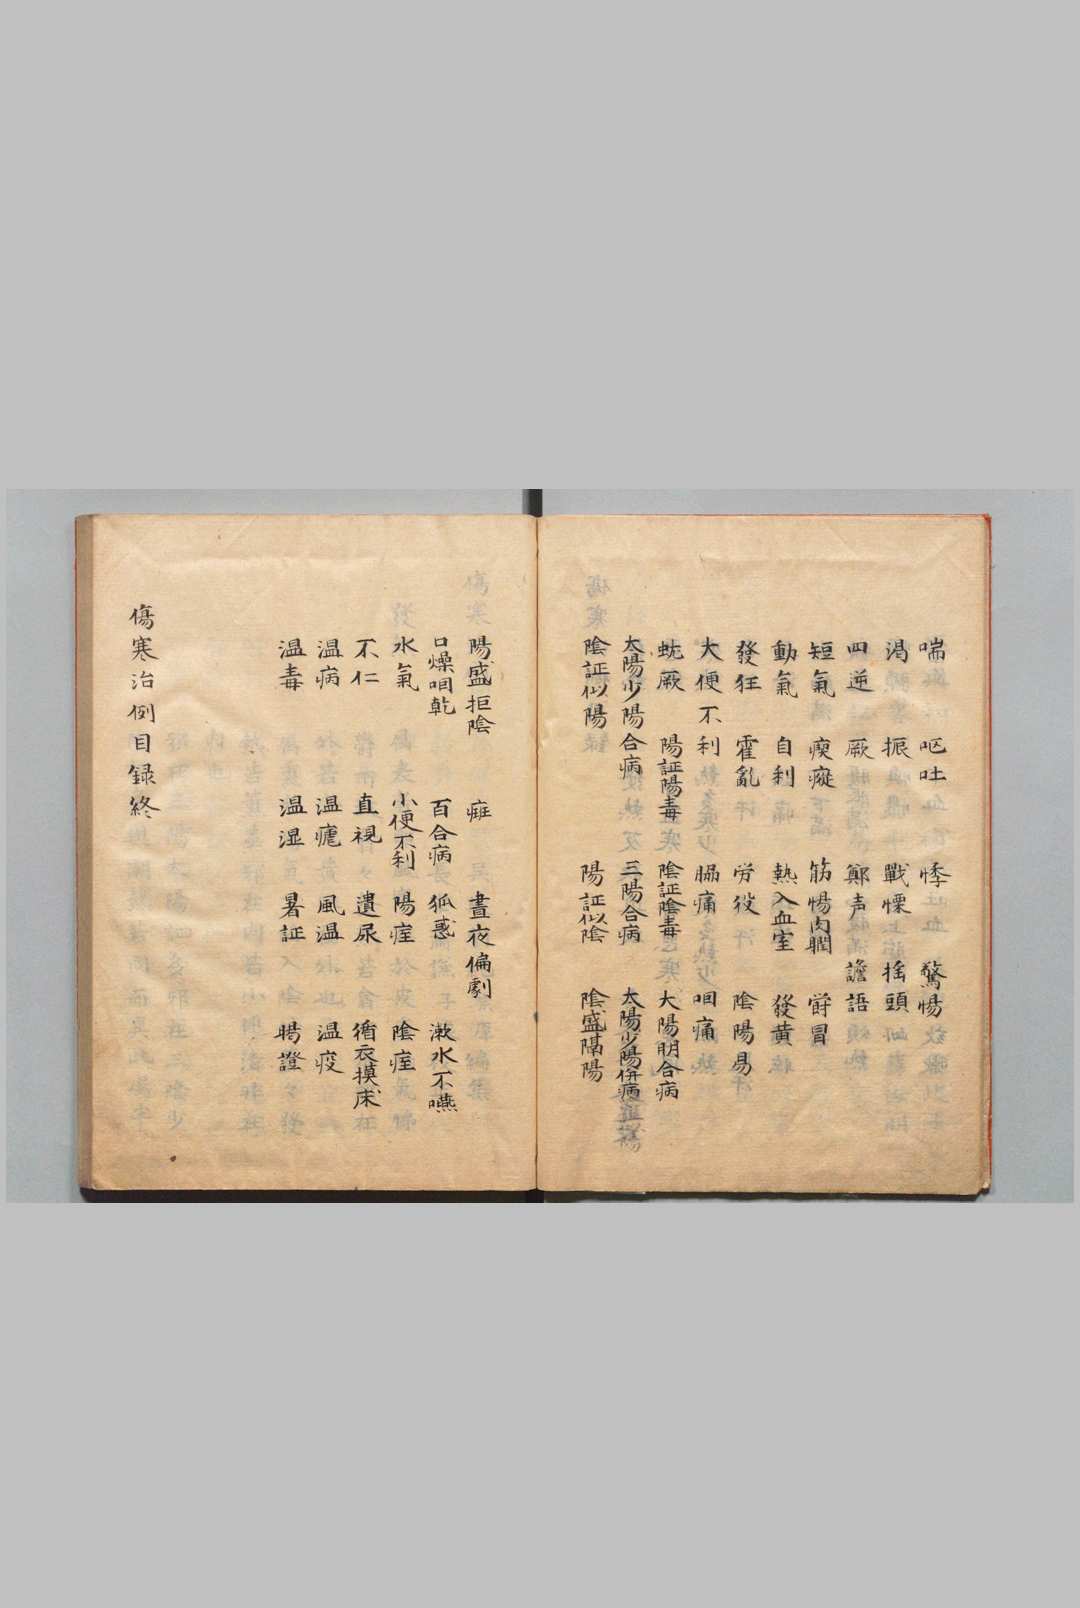 喘 呕吐 悸 驚惕
渇 振 戰慄 揺頭
四逆 厥 鄭声 譫語
短氣 瘈瘲 筋惕肉瞤 欝冒
動氣 自利 熱入血室 發黄
發狂 霍亂 労役 陰陽易
大便不利 腸痛 咽痛
蚘厥 陽証陽毒 陰証陰毒 大陽明合病
太陽少陽合病 三陽合病 太陽少陽併病
陰証似陽 陽証似陰 陰盛隔陽
陽盛拒陰 晝夜偏劇
口燥咽乾 百合病 狐惑 漱水不嚥
水氣 小便不利 陽痓 陰痓
不仁 直視 遺尿 循衣摸床
温病 温瘧 風温 温疫
温毒 温湿 暑証
傷寒治例目録終